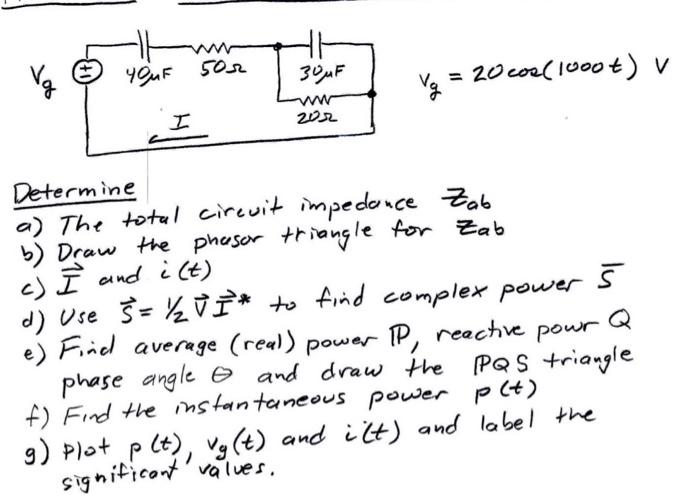 Vg 40μF 50Ω 30μF 20Ω I
Vg = 20 cos(1000t) V
Determine
a) The total circuit impedance Zab
b) Draw the phasor triangle for Zab
c) I⃗ and i(t)
d) Use S⃗ = ½ V⃗ I⃗* to find complex power S̄
e) Find average (real) power P, reactive powr Q
phase angle θ and draw the PQS triangle
f) Find the instantaneous power p(t)
g) Plot p(t), vg(t) and i(t) and label the
significant values.